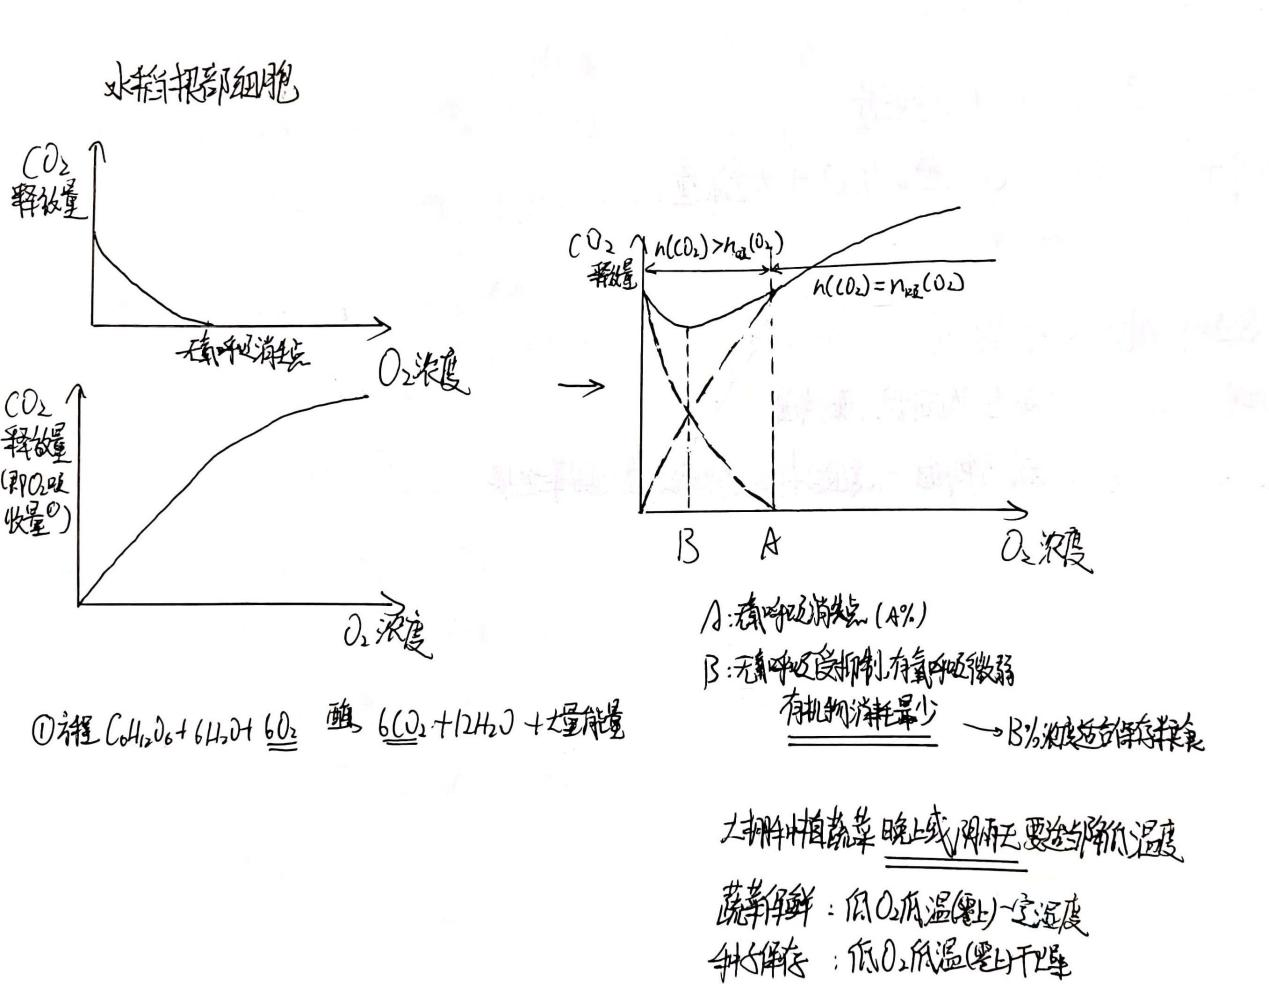 水稻根部细胞
CO₂
释放量
无氧呼吸消失点
O₂浓度
CO₂
释放量
(即O₂吸
收量①)
O₂浓度
①方程 C₆H₁₂O₆+6H₂O+6O₂ 酶 6CO₂+12H₂O+大量能量
CO₂
释放量
n(CO₂)>n吸(O₂)
n(CO₂)=n吸(O₂)
B
A
O₂浓度
A:无氧呼吸消失点(A%)
B:无氧呼吸受抑制,有氧呼吸微弱
有机物消耗最少
→B%浓度适合保存粮食
大棚种植蔬菜晚上或阴雨天要适当降低温度
蔬菜保鲜:低O₂低温(零上)一定湿度
种子保存:低O₂低温(零上)干燥